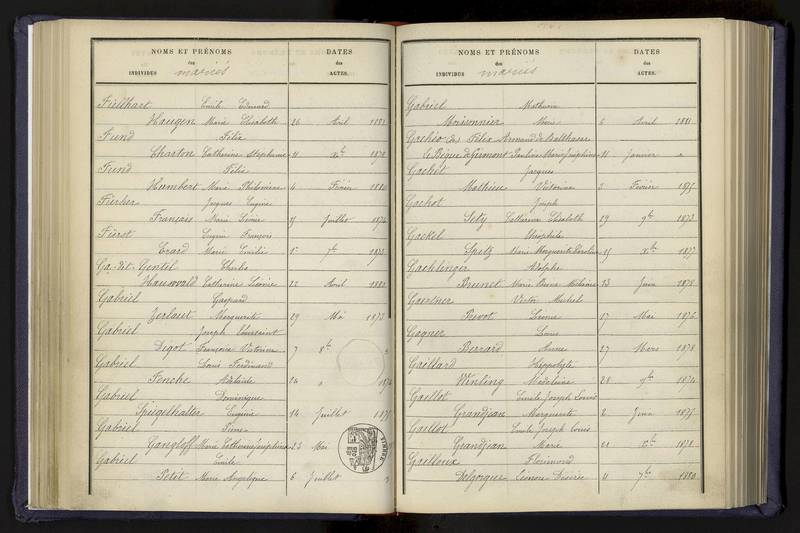 NOMS ET PRÉNOMS
des
INDIVIDUS mariés
DATES
des
ACTES.
Füllhart Emile Edouard
Haugen Marie Elisabeth 26 Avril 1881
Fund Félix
Charton Catherine Stéphanie 11 Xbre 1878
Fund Félix
Humbert Marie Philomène 4 Février 1880
Fürher Jacques Eugène
Français Marie 15 Juillet 1874
Fürst Eugène François
Erard Marie Emilie 1er 7bre 1875
Ga-dit-Gentil Charles
Hauwald Catherine Léonie 22 Avril 1882
Gabriel Gaspard
Zerlaut Marguerite 29 Mai 1873
Gabriel Joseph Toussaint
Digot Françoise Victorine 7 8bre
Gabriel Louis Ferdinand
Fenche Adélaïde 24 1874
Gabriel Dominique
Spiegelhalter Eugénie 14 Juillet 1878
Gabriel
Gangloff Marie Catherine Joséphine 23 Mai
Gabriel Emile
Petit Marie Angélique 6 Juillet
TIMBRE
NOMS ET PRÉNOMS
des
INDIVIDUS mariés
DATES
des
ACTES.
Gabriel Mathurin
Moissonnier Marie 6 Avril 1881
Félix Armand de Balthasar
Le Bègue de Germont Pauline Marie Joséphine 11 Janvier
Gachot Jacques
Mathieu Victorine 2 Février 1875
Gachot Joseph
Sety Catherine Elisabeth 29 9bre 1873
Gackel Théophile
Spitz Marie Marguerite Caroline 15 Xbre 1877
Gaehlinger Adolphe
Brunet Marie Anne 23 Juin 1878
Gaertner Victor Michel
Prevot Léonie 17 Mai 1876
Gagner Louis
Bernard Anne 27 Mars 1878
Gaillard Hippolyte
Winling Madeleine 28 9bre 1874
Gaillot Emile Joseph Louis
Grandjean Marguerite 2 Juin 1875
Gaillot Emile Joseph Louis
Grandjean Marie 21 Xbre 1878
Gailloux Florimond
Delgorgier Léonore Désirée 11 7bre 1880